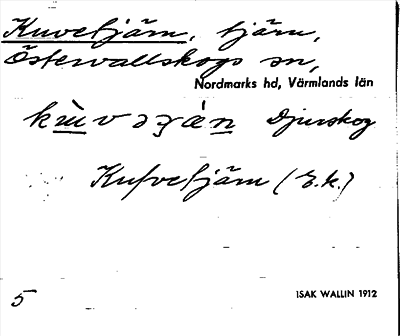 Kuvetjärn, tjärn,
Östervallskogs sn,
Nordmarks hd, Värmlands län
Djurskog
Kufvetjärn (E.k.)
5 ISAK WALLIN 1912